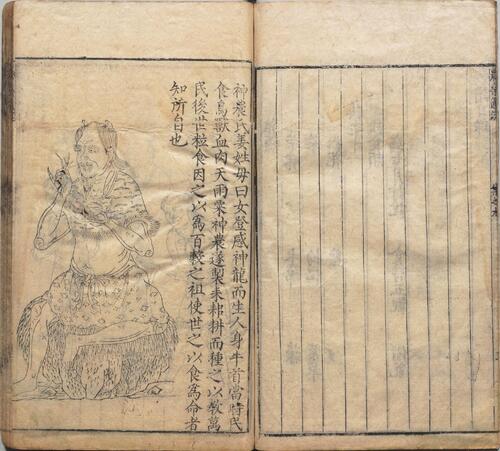 神農氏姜姓母曰女登感神龍而生人身牛首當時民
食鳥獸血肉天雨粟神農遂製耒耜耕而種之以教萬
民後世粒食因之以爲百穀之祖使世之以食爲命者
知所自也